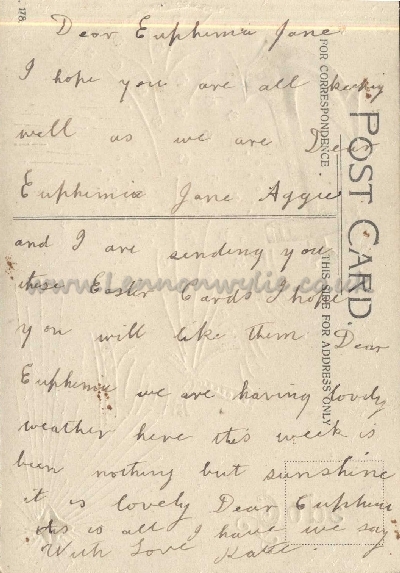 178.
Dear Euphemia Jane
I hope you are all keeping
well as we are Dear
Euphemia Jane Aggie
and I are sending you
these Easter Cards I hope
you will like them Dear
Euphemia we are having lovely
weather here this week is
been nothing but sunshine
it is lovely Dear Euphemia
this is all I have we say
With Love Katie.
POST CARD.
FOR CORRESPONDENCE
THIS SIDE FOR ADDRESS ONLY
www.lennonwylie.co.uk